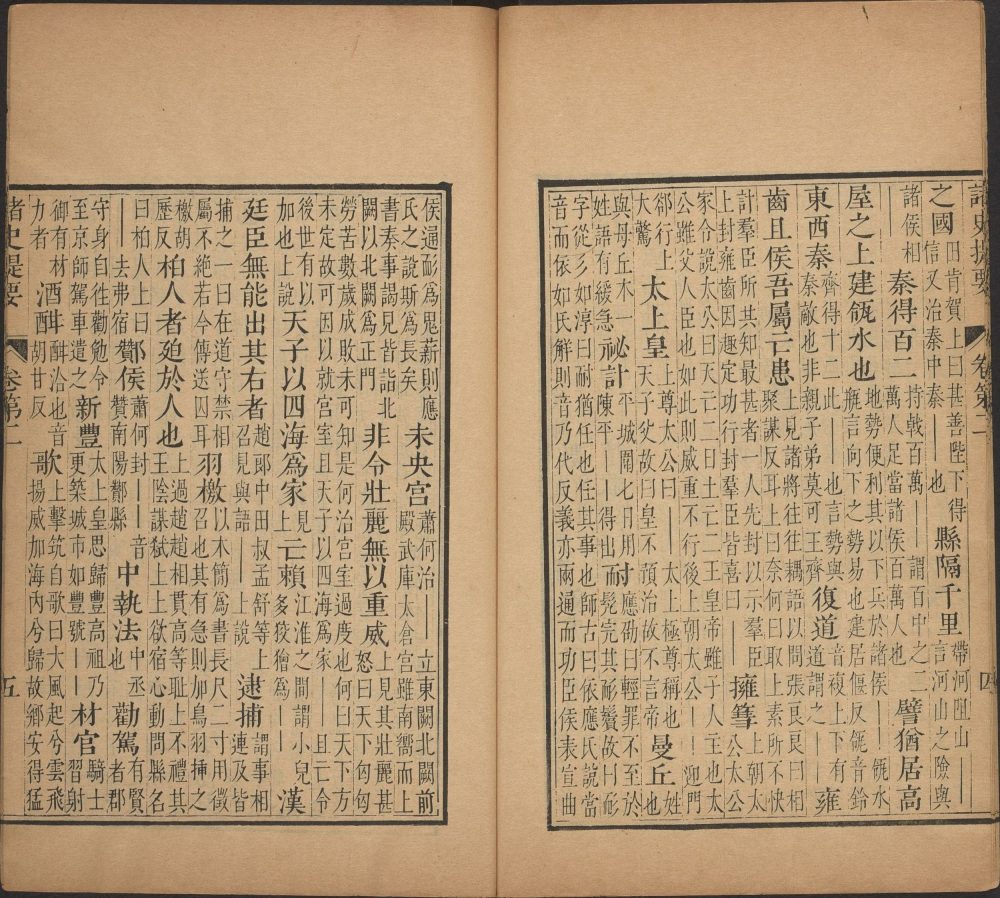 諸史提要 卷第二 四
之國田肯賀上曰甚善陛下得信又治秦中秦——也縣隔千里帶河阻山——言河山之險與
諸侯相秦得百二持戟百萬——謂百中之二萬人足當諸侯百萬人也譬猶居高
屋之上建瓴水也地勢便利其以下兵於諸侯——瓴水瓶言向下之勢易也建居偃反瓴音鈴
東西秦齊得十二此——也言勢與秦敵也非親子弟莫可王齊復道音複上下有道謂之——雍
齒且侯吾屬亡患上見諸將往往耦語以問張良良曰相聚謀反耳上曰奈何曰取上素所不快
計羣臣所共知最甚者一人先封以示羣臣上封雍齒因趣定功行封羣臣皆喜曰——擁篲上朝太公太公
家令說太公曰天亡二日土亡二王皇帝雖子人主也太公雖父人臣也如此則威重不行後上朝太公——迎門
郤行上大驚太上皇上尊太公曰——太上極尊稱也天子父故曰皇不預治故不言帝曼丘姓也
與母丘本一姓語有緩急祕計平城圍七日用陳平——得出耐應劭曰輕罪不至於而髡完其耏鬢故曰耏
字從彡如淳曰耐猶任也任其事也師古曰依應氏說當音而依如氏解則音乃代反義亦兩通而功臣侯表宣曲
侯通耏為鬼薪則應氏之說斯為長矣未央宮蕭何治——立東闕北闕前殿武庫太倉宮雖南嚮而上
書奏事謁見皆詣北闕以北闕為正門非令壯麗無以重威上見其壯麗甚怒曰天下匈匈
勞苦數歲成敗未可知是何治宮室過度也何曰天下方未定故可因以就宮室且天子以四海為家——且亡令
後世有以加也上說天子以四海為家上亡賴江淮之間謂小兒多狡獪為——漢
廷臣無能出其右者趙郎中田叔孟舒等上召見與語——上說逮捕謂事相連及皆
捕之一曰在道守禁相屬不絕若今傳送囚耳羽檄以木簡為書長尺二寸用徵召也其有急則加鳥羽插之
檄胡歷反柏人者廹於人也上過趙趙相貫高等恥上不禮其王陰謀弒上上欲宿心動問縣名
曰柏人上曰——去弗宿酇侯蕭何封——音贊南陽酇縣中執法中丞也勸駕賢者郡
守身自徃勸勉令至京師駕車遣之新豐太上皇思歸豐高祖乃更築城市如豐號——材官騎士習射
御有材力者酒酣酣洽也音胡甘反歌上擊筑自歌曰大風起兮雲飛揚威加海內兮歸故鄉安得猛
諸史提要 卷第二 五